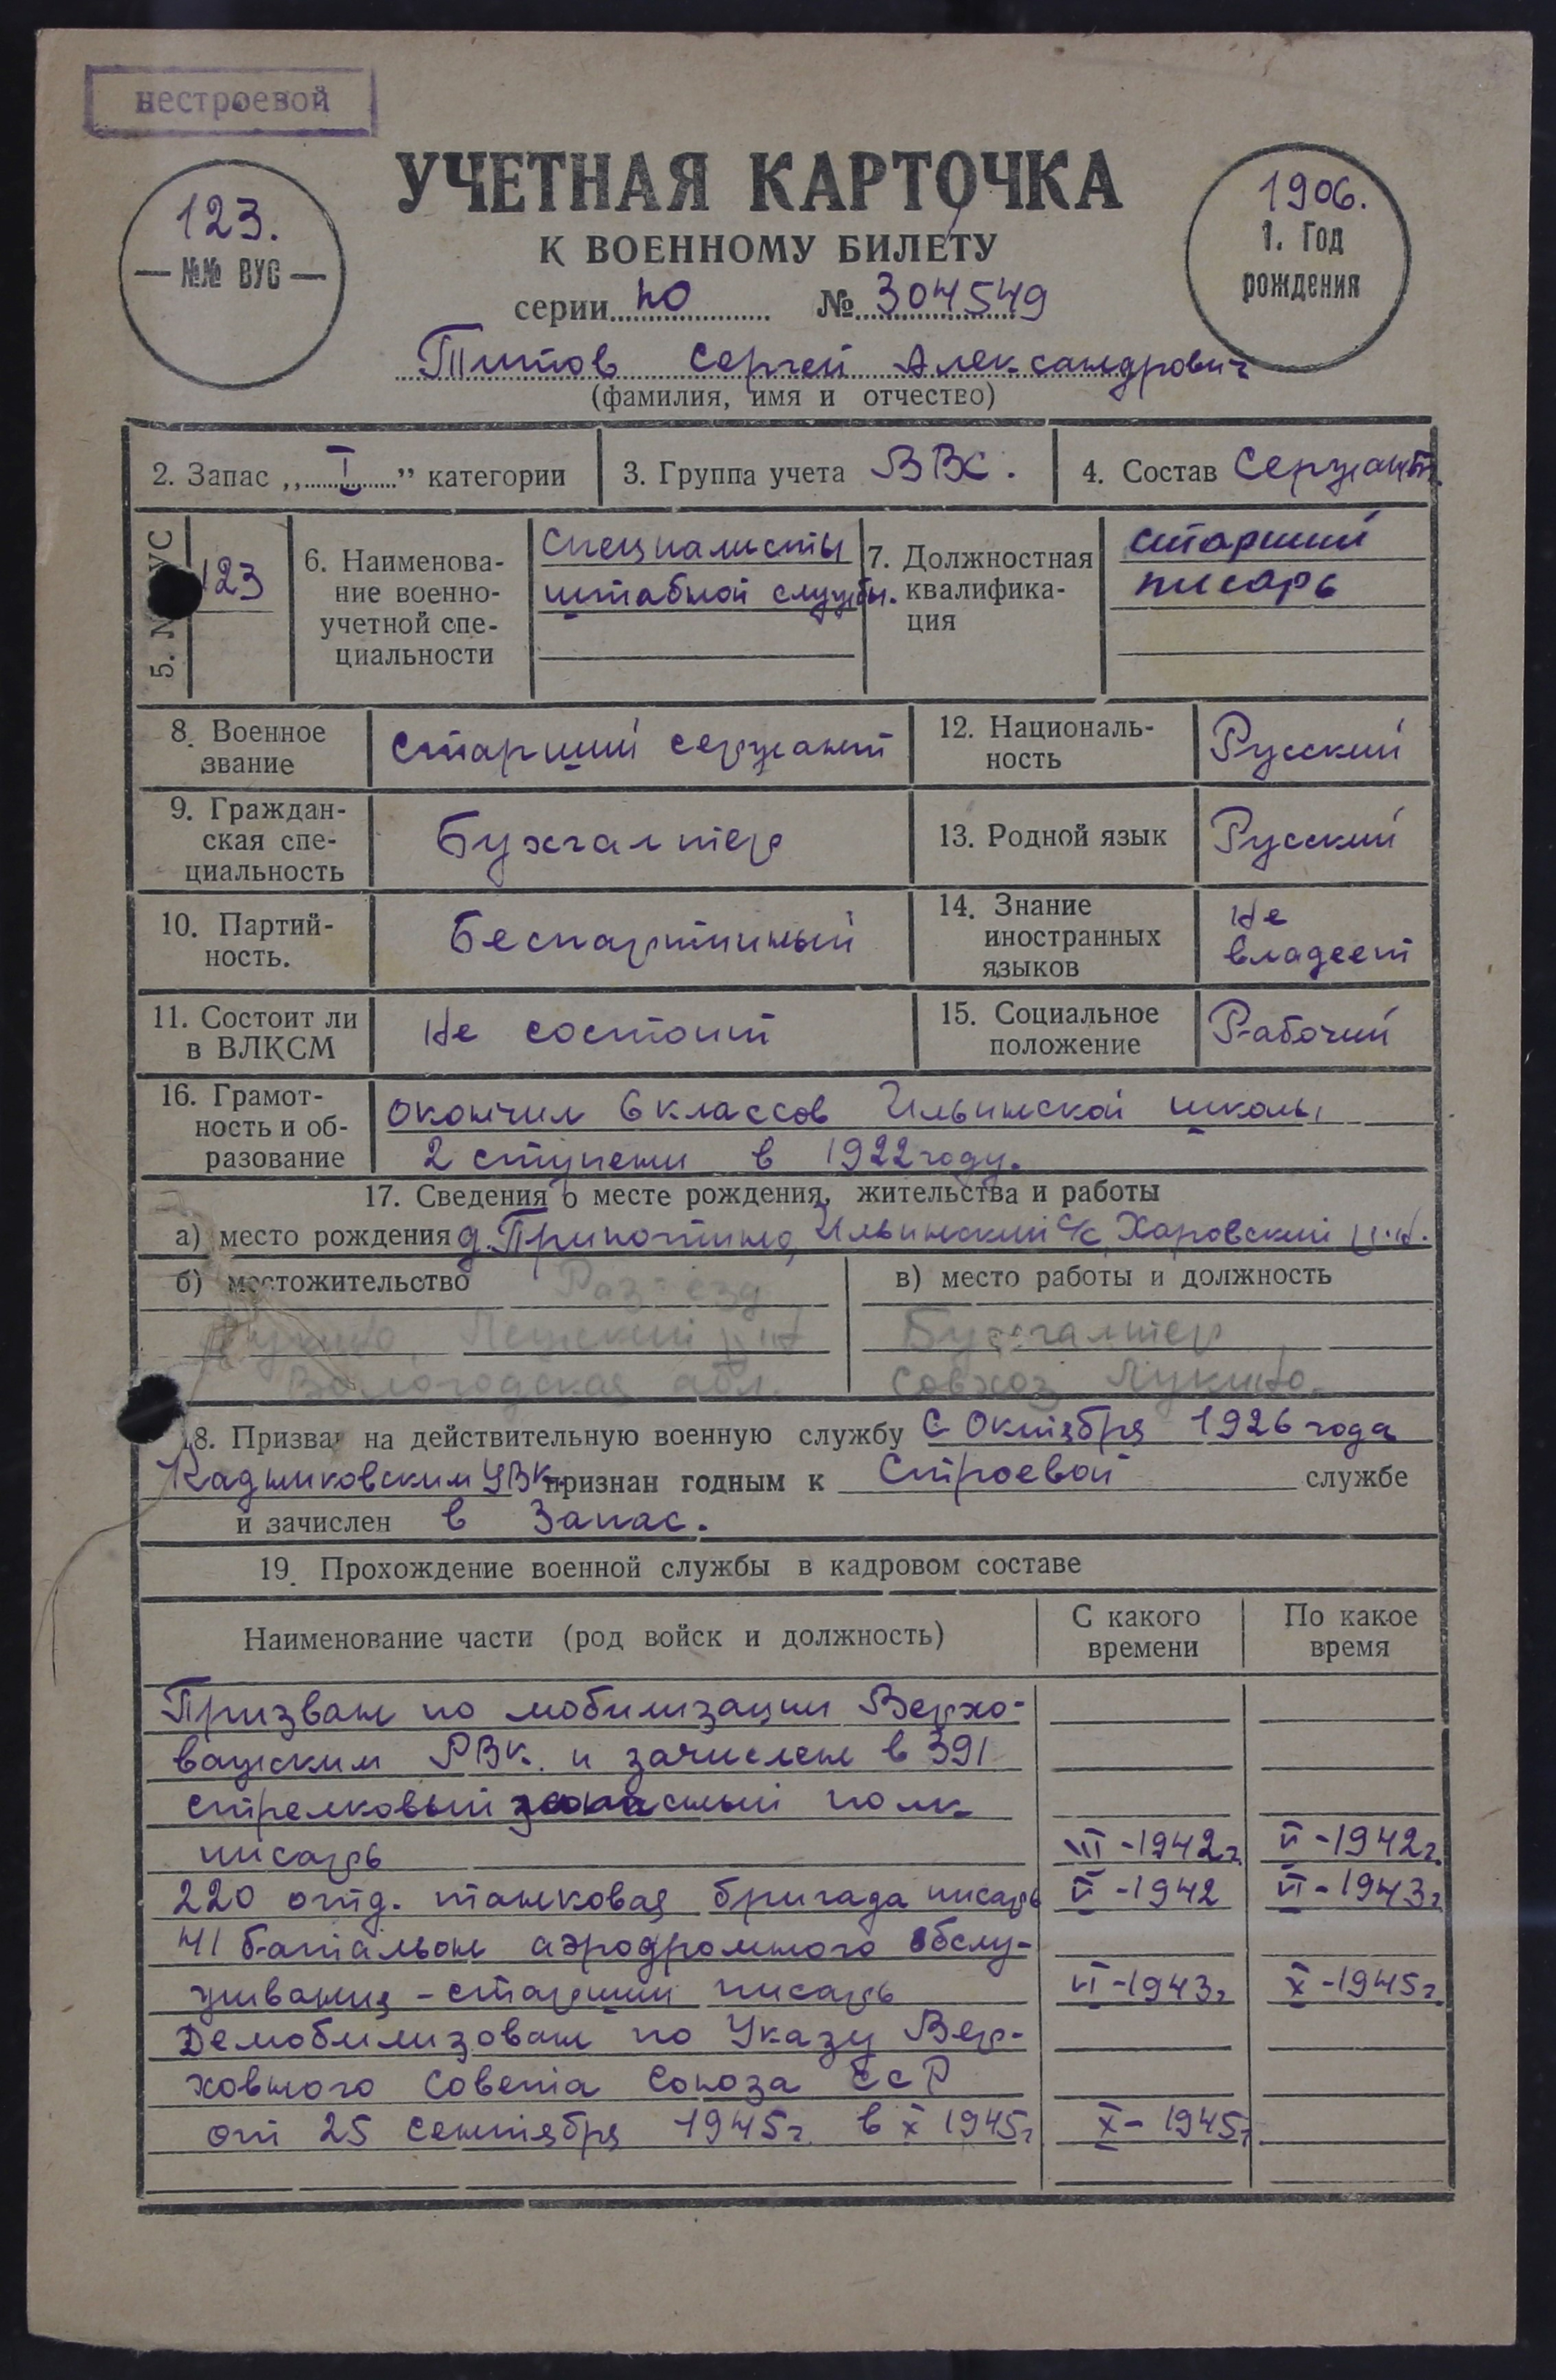 нестроевой
УЧЕТНАЯ КАРТОЧКА
К ВОЕННОМУ БИЛЕТУ
123.
— №№ ВУС —
1906.
1. Год
рождения
серии Ю № 304549
Титов Сергей Александрович
(фамилия, имя и отчество)
2. Запас „ I ” категории
3. Группа учета ВВС.
4. Состав Сержант.
5. № ВУС 123
6. Наименова-
ние военно-
учетной спе-
циальности
Специалисты
штабной службы.
7. Должностная
квалифика-
ция
старший
писарь
8. Военное
звание
старший сержант
12. Националь-
ность
Русский
9. Граждан-
ская спе-
циальность
Бухгалтер
13. Родной язык
Русский
10. Партий-
ность.
Беспартийный
14. Знание
иностранных
языков
Не
владеет
11. Состоит ли
в ВЛКСМ
Не состоит
15. Социальное
положение
Рабочий
16. Грамот-
ность и об-
разование
окончил 6 классов Ильинской школы
2 ступени в 1922 году.
17. Сведения о месте рождения, жительства и работы
а) место рождения д. Ильинский с/с, Харовский р-н.
б) местожительство Раз'езд
р-н
Вологодская обл.
в) место работы и должность
Бухгалтер
совхоз Лукино.
18. Призван на действительную военную службу С Октября 1926 года
Кадниковским УВК. признан годным к Строевой службе
и зачислен в Запас.
19. Прохождение военной службы в кадровом составе
Наименование части (род войск и должность)
С какого
времени
По какое
время
Призван по мобилизации Верхо-
важским РВК. и зачислен в 391
стрелковый запасный полк
писарь III-1942г. VI-1942г.
220 отд. танковая бригада писарь VI-1942 VI-1943г.
41 батальон аэродромного обслу-
живания - старший писарь VI-1943г X-1945г.
Демобилизован по Указу Вер-
ховного Совета Союза ССР
от 25 сентября 1945г. в X 1945г X-1945г